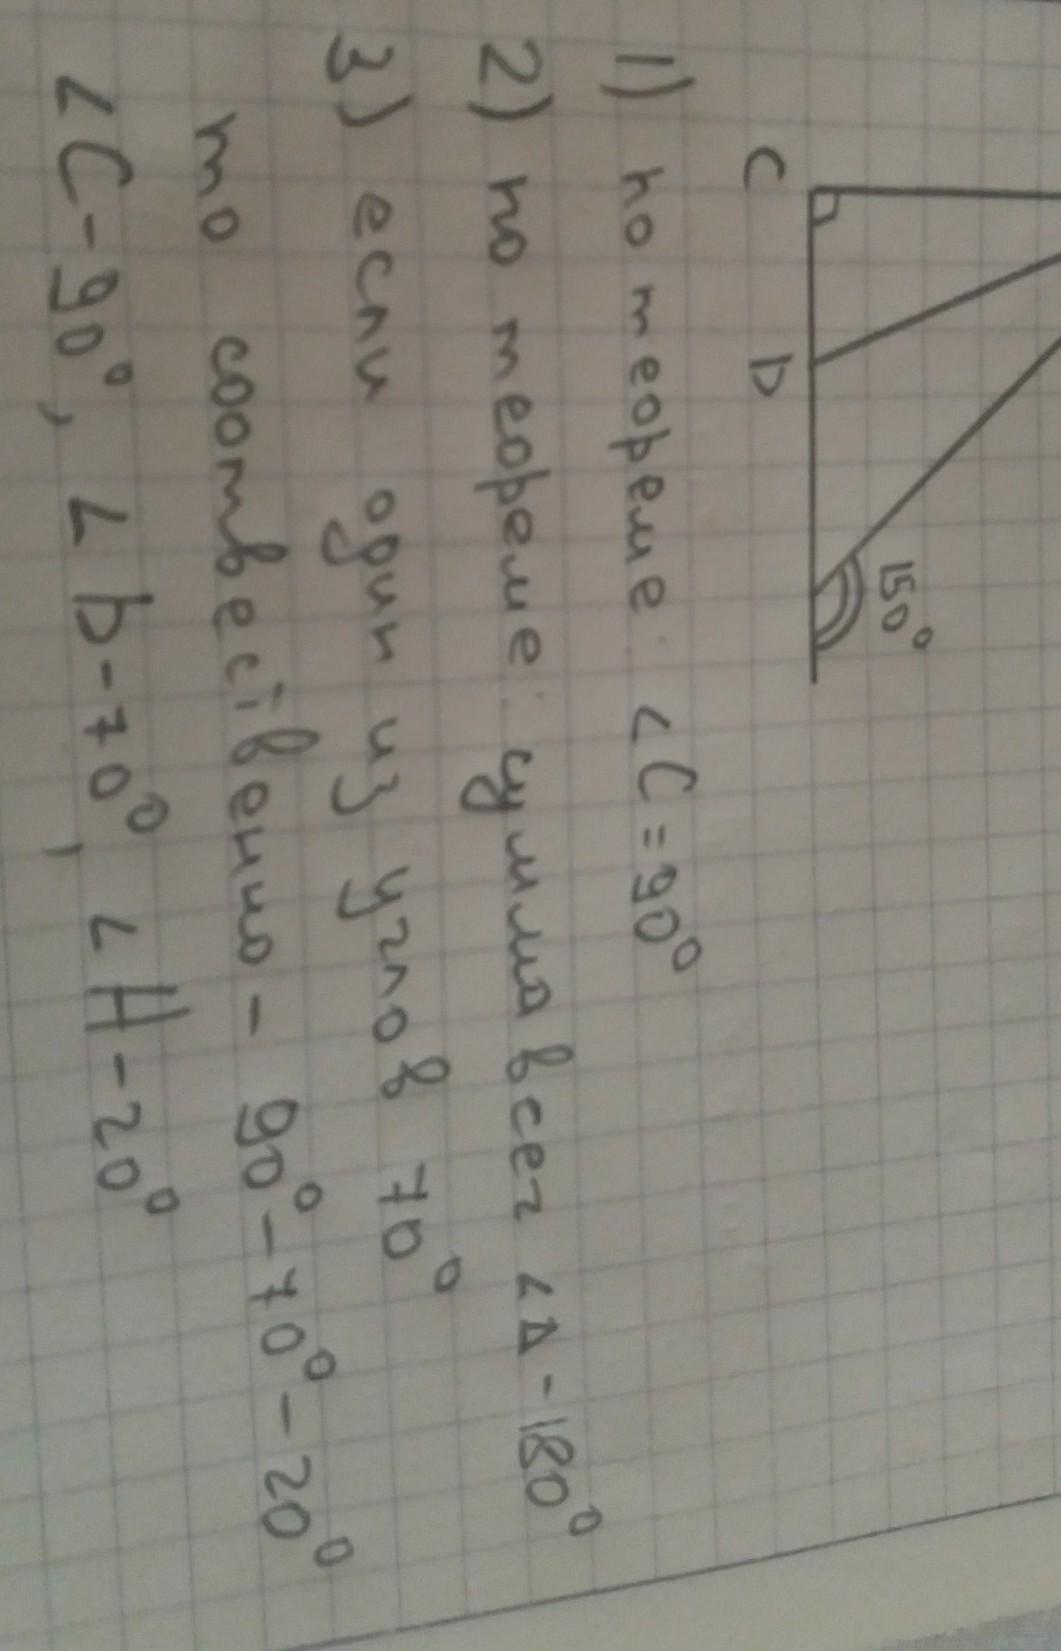 150°
C D
1) по теореме: <C=90°
2) по теореме: сумма всег <Δ-180°
3) если один из углов 70°
то соотвествено - 90°-70°-20°
<C-90°, <D-70°, <H-20°